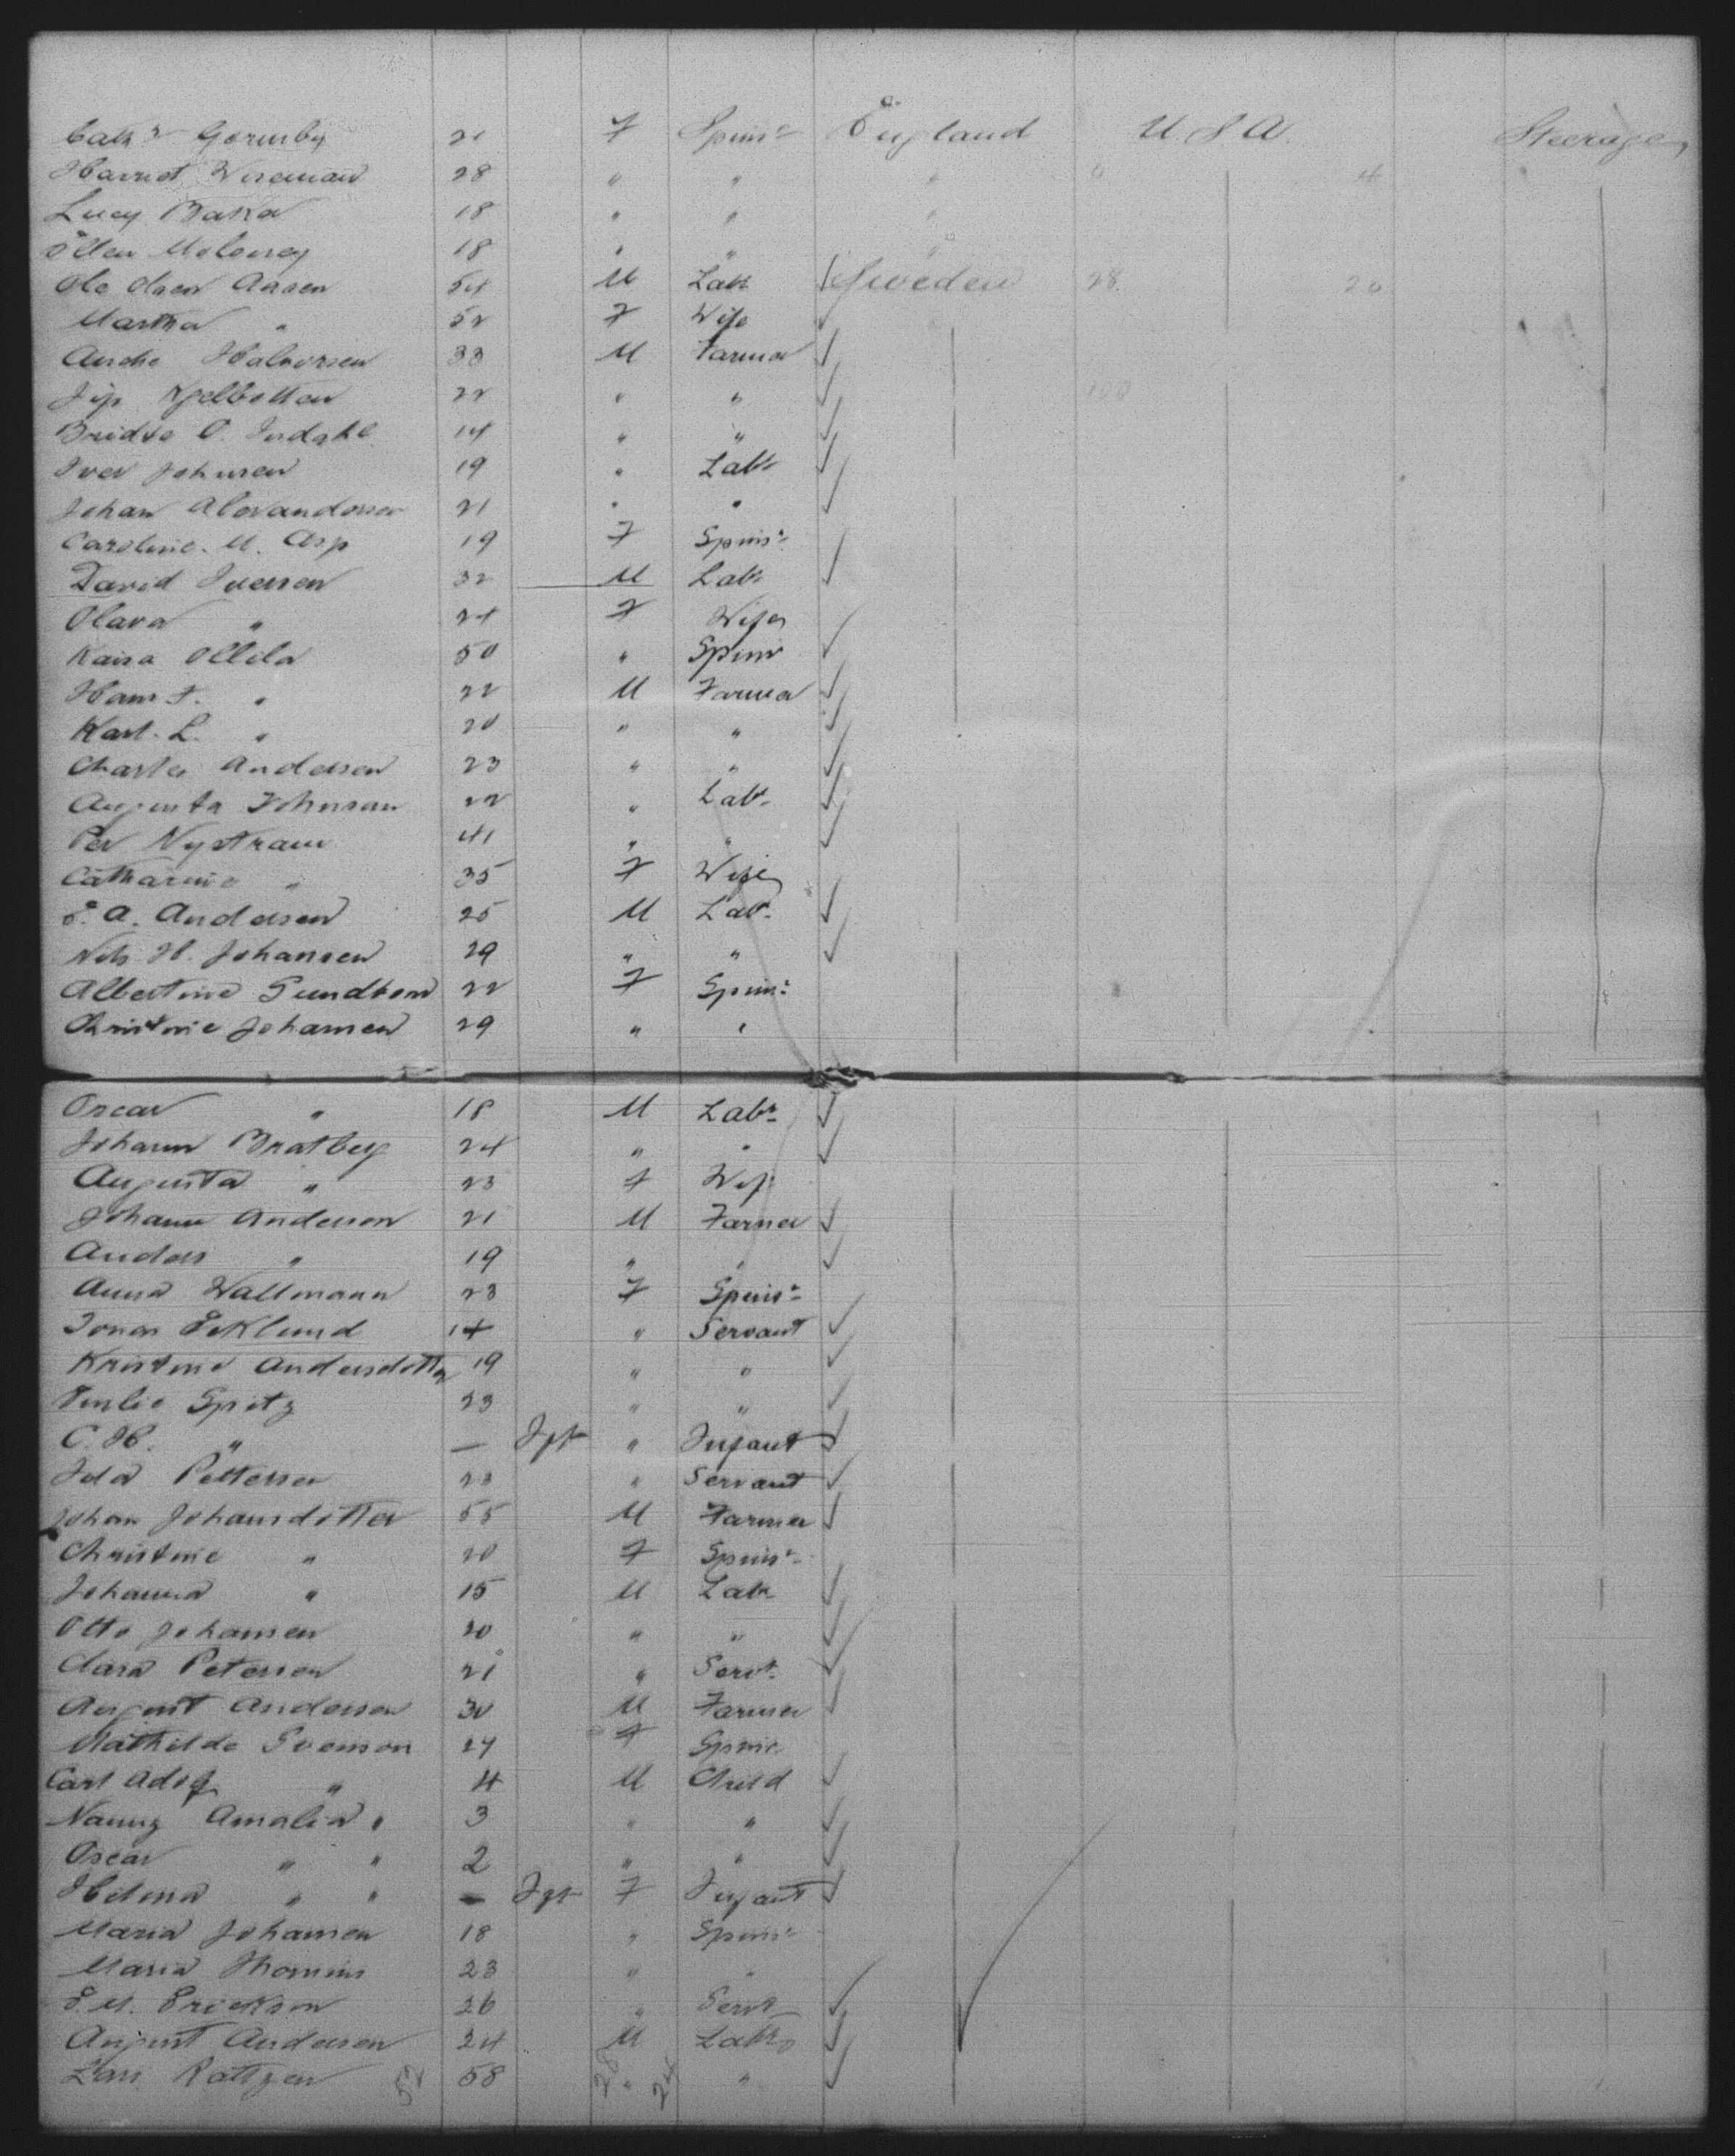 Cath Gormby 21 F Spinr England U S A Steerage
Harriet Wiseman 28 " " " " 4 "
Lucy Baker 18 " " "
Ellen Moloney 18 " " "
Ole Olsen Aasen 54 M Labr Sweden 28 20
Martha " 52 F Wife
Halvorsen 33 M Farmer
Kjelbotten 22 " " 100
O. Indahl 14 " "
Iver Johnsen 19 " Labr
Johan Alexandersen 21 " "
Caroline M. Asp 19 F Spinr
David Iversen 32 M Labr
Olava " 24 F Wife
Kaisa Ollila 50 " Spinr
Hans F. " 22 M Farmer
Karl L. " 20 " "
Charles Andersen 23 " "
Augusta Johnson 22 " Labr
Per Nystram 41 " "
Catharine " 35 F Wife
E. A. Andersen 25 M Labr
Nils H. Johansen 29 " "
Albertine 22 F Spinr
Christine Johansen 29 " "
Oscar " 18 M Labr
Johann Bratberg 24 " "
Augusta " 23 F Wife
Johann Anderson 21 M Farmer
Anders " 19 " "
Anna Wallmann 23 F Spinr
Jonas Eeklund 14 " Servant
Kristine Andersdotter 19 " "
Emlie Spitz 23 " "
C. H. " — Inft " Infant
Ida Petterson 23 " Servant
Johan Johansdotter 55 M Farmer
Christine " 20 F Spinr
Johanna " 15 M Labr
Otto Johansen 20 " "
Clara Petersen 21 " Servt
August Anderson 30 M Farmer
Mathilde Svenson 27 F Spinr
Carl Adolf " 4 M Child
Nanny Amalia " 3 " "
Oscar " " 2 " "
Hilma " " — Inft F Infant
Maria Johansen 18 " Spinr
Maria 23 " "
E. M. Erickson 26 " Servt
August Andersen 24 M Labr
Lars 58 " "
52 28 24